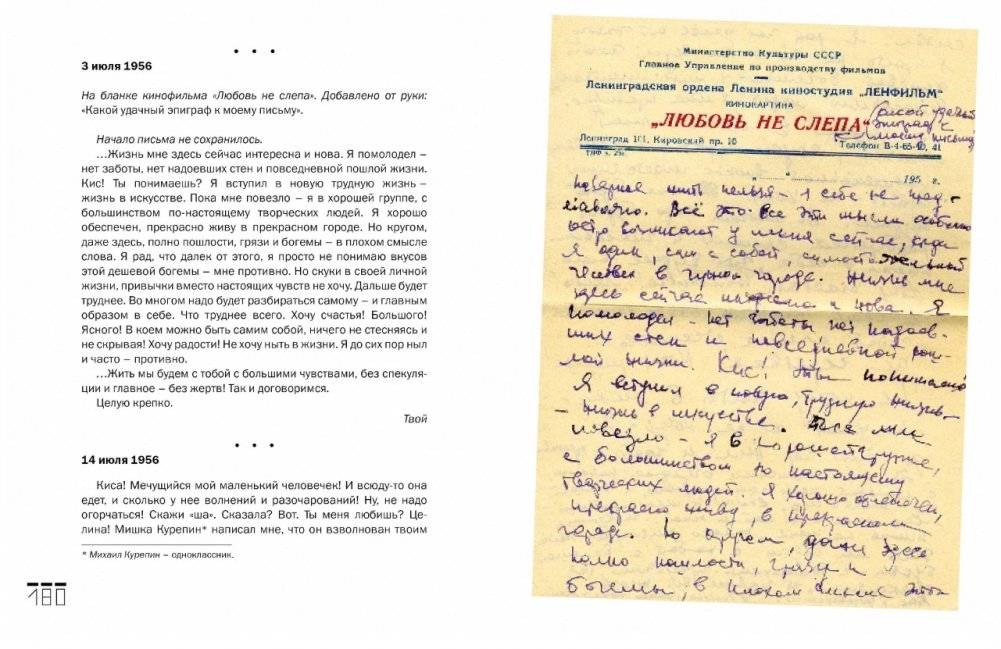 • • •
3 июля 1956
На бланке кинофильма «Любовь не слепа». Добавлено от руки:
«Какой удачный эпиграф к моему письму».
Начало письма не сохранилось.
…Жизнь мне здесь сейчас интересна и нова. Я помолодел –
нет заботы, нет надоевших стен и повседневной пошлой жизни.
Кис! Ты понимаешь? Я вступил в новую трудную жизнь –
жизнь в искусстве. Пока мне повезло – я в хорошей группе, с
большинством по-настоящему творческих людей. Я хорошо
обеспечен, прекрасно живу в прекрасном городе. Но кругом,
даже здесь, полно пошлости, грязи и богемы – в плохом смысле
слова. Я рад, что далек от этого, я просто не понимаю вкусов
этой дешевой богемы – мне противно. Но скуки в своей личной
жизни, привычки вместо настоящих чувств не хочу. Дальше будет
труднее. Во многом надо будет разбираться самому – и главным
образом в себе. Что труднее всего. Хочу счастья! Большого!
Ясного! В коем можно быть самим собой, ничего не стесняясь и
не скрывая! Хочу радости! Не хочу ныть в жизни. Я до сих пор ныл
и часто – противно.
…Жить мы будем с тобой с большими чувствами, без спекуля-
ции и главное – без жертв! Так и договоримся.
Целую крепко.
Твой
• • •
14 июля 1956
Киса! Мечущийся мой маленький человечек! И всюду-то она
едет, и сколько у нее волнений и разочарований! Ну, не надо
огорчаться! Скажи «ша». Сказала? Вот. Ты меня любишь? Це-
лина! Мишка Курепин* написал мне, что он взволнован твоим
* Михаил Курепин – одноклассник.
180
Министерство Культуры СССР
Главное Управление по производству фильмов
Ленинградская ордена Ленина киностудия „ЛЕНФИЛЬМ"
КИНОКАРТИНА
„ЛЮБОВЬ НЕ СЛЕПА"
Какой удачный
эпиграф к
моему письму
Ленинград 101, Кировский пр. 10 Телефон В-4-65-90, 41
195 г.
наверное жить нельзя – я себе не пред-
ставляю. Всё это все эти мысли особенно
остро возникают у меня сейчас, когда
я один, сам с собой, самостоятельный
человек в чужом городе. Жизнь мне
здесь сейчас интересна и нова. Я
помолодел – нет заботы нет надоев-
ших стен и повседневной пош-
лой жизни. Кис! Ты понимаешь
Я вступил в новую, трудную жизнь –
– жизнь в искусстве. Пока мне
повезло – я в хорошей группе,
с большинством по настоящему
творческих людей. Я хорошо обеспечен,
прекрасно живу, в прекрасном
городе. Но кругом, даже здесь
полно пошлости, грязи и
богемы, в плохом смысле этого